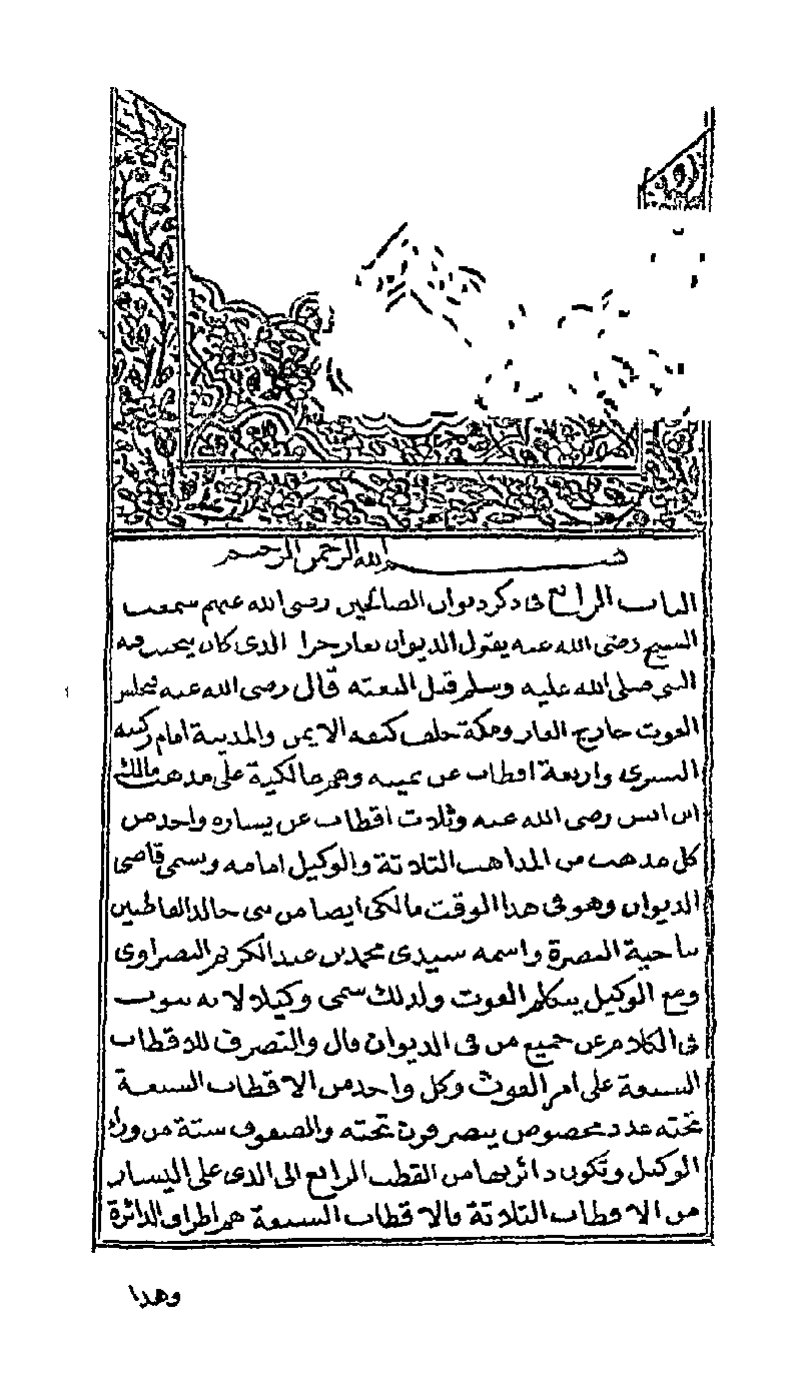 بسم الله الرحمن الرحيم
الباب الرابع في ذكر ديوان الصالحين رضي الله عنهم سمعت
الشيخ رضي الله عنه يقول الديوان بغار حرا الذي كان يتحنث فيه
النبي صلى الله عليه وسلم قبل البعثة قال رضي الله عنه فيجلس
الغوث خارج الغار ومكة خلف كتفه الايمن والمدينة امام ركبته
اليسرى واربعة اقطاب عن يمينه وهم مالكية على مذهب مالك
ابن انس رضي الله عنه وثلاث اقطاب عن يساره واحد من
كل مذهب من المذاهب الثلاثة والوكيل امامه ويسمى قاضي
الديوان وهو في هذا الوقت مالكي ايضا من بني خالد القاطنين
بناحية البصرة واسمه سيدي محمد بن عبد الكريم البصراوي
ومع الوكيل يتكلم الغوث ولذلك سمي وكيلا لانه ينوب
في الكلام عن جميع من في الديوان قال والتصرف للاقطاب
السبعة على امر الغوث وكل واحد من الاقطاب السبعة
تحته عدد مخصوص يتصرفون تحته والصفوف ستة من وراء
الوكيل وتكون دائرتها من القطب الرابع الى الذي على اليسار
من الاقطاب الثلاثة فالاقطاب السبعة هم اطراف الدائرة
وهذا